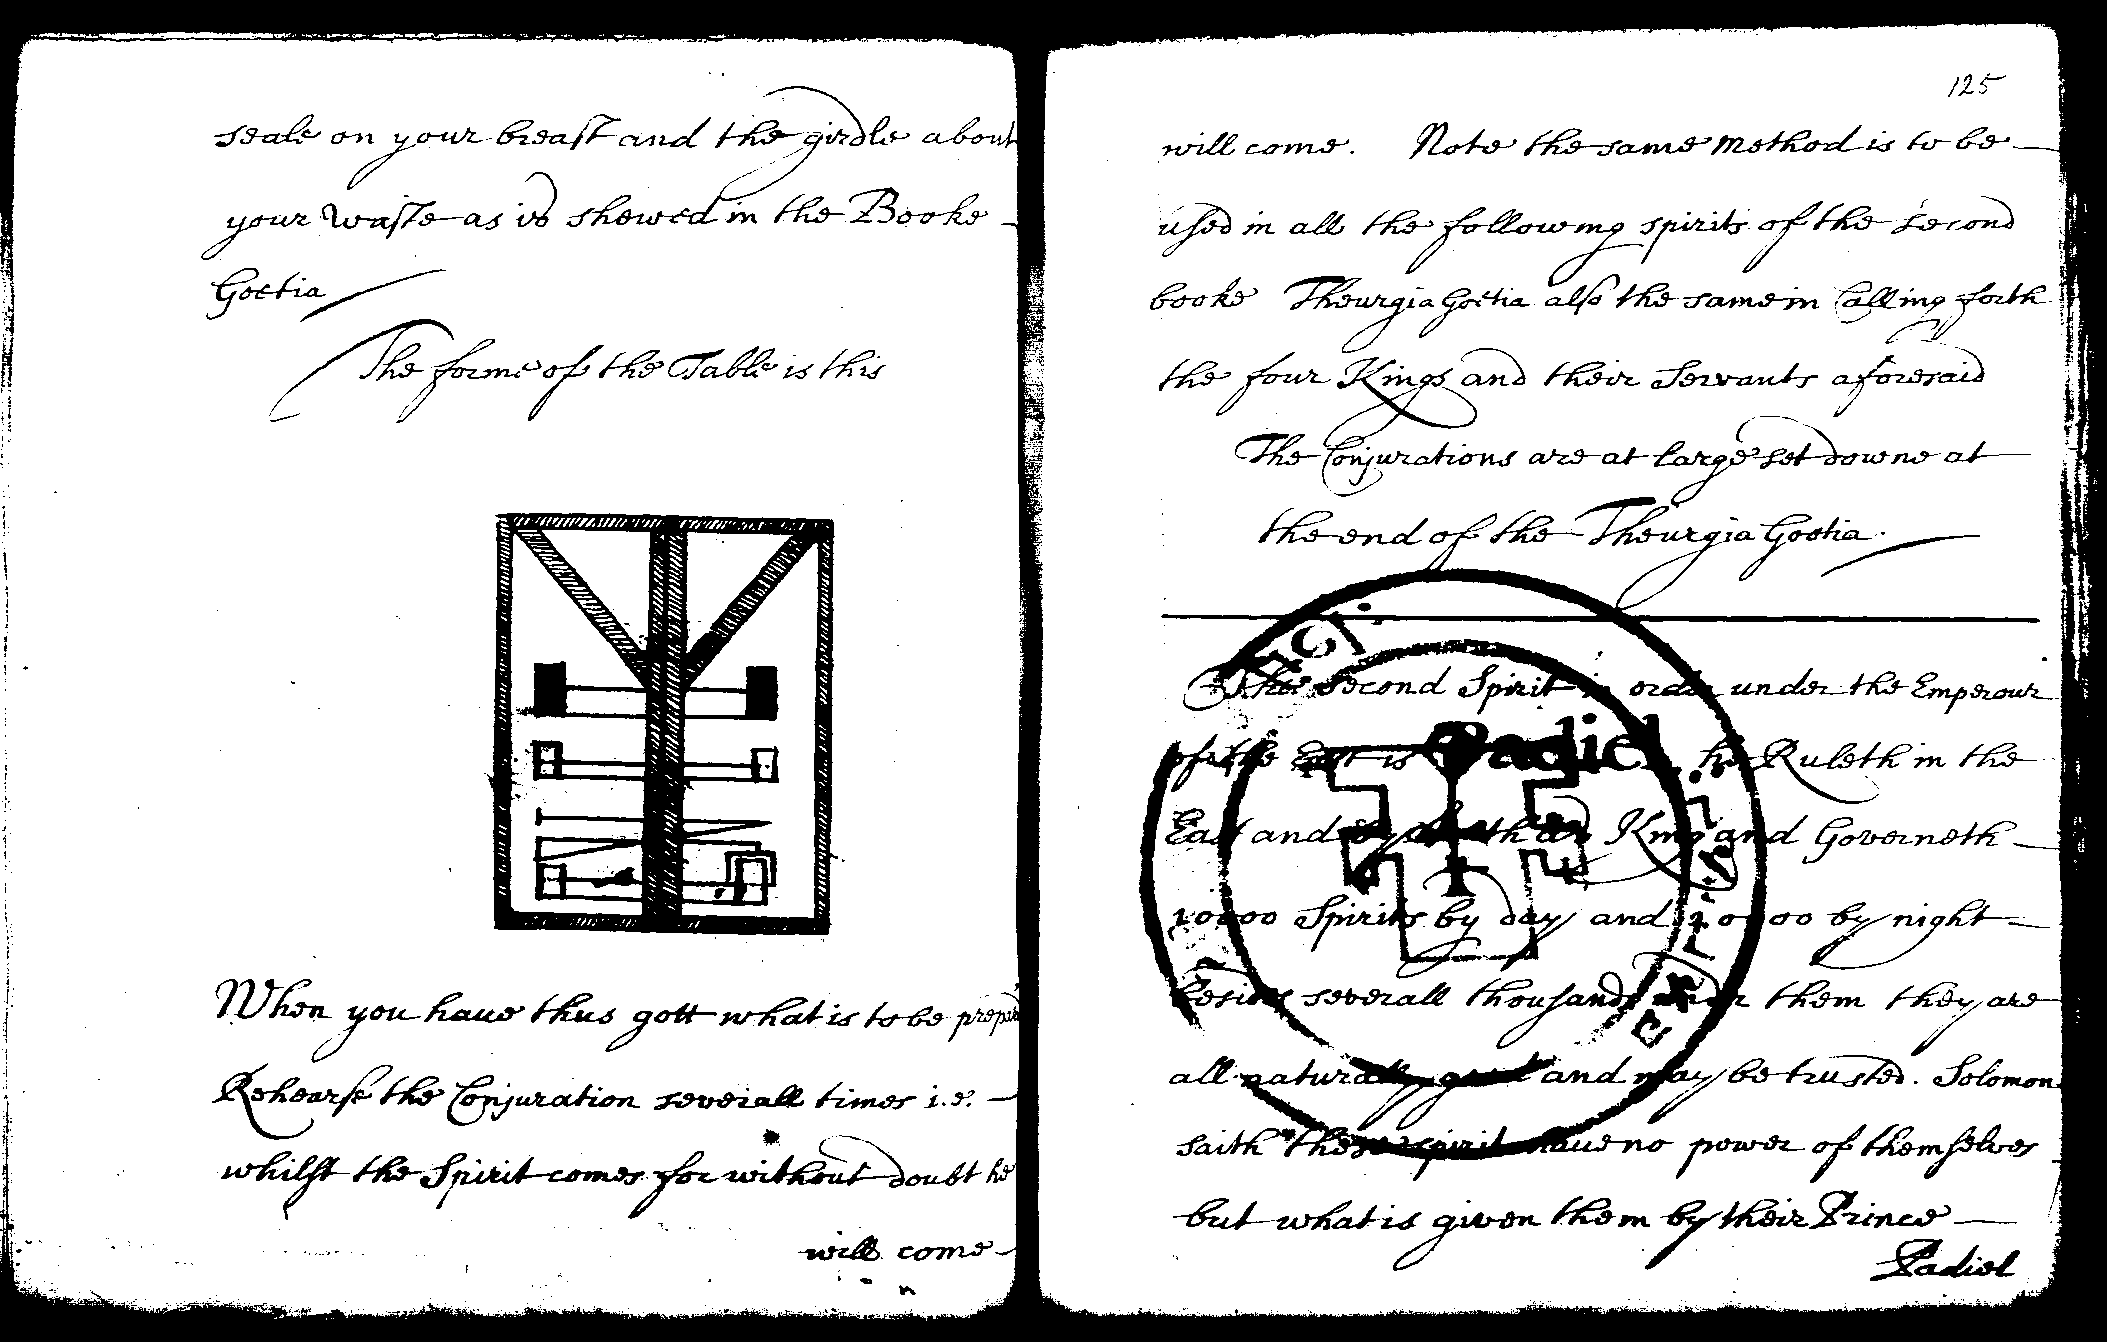 seale on your breast and the girdle about
your waste as is shewed in the Booke
Goetia
The forme of the Table is this
When you haue thus gott what is to be prepard
Rehearse the Conjuration severall times i.e.
whilst the Spirit comes for without doubt he
will come
125
will come. Note the same method is to be
used in all the following spirits of the second
booke Theurgia Goetia also the same in Calling forth
the four Kings and their Servants aforesaid
The Conjurations are at large set downe at
the end of the Theurgia Goetia.
The second Spirit in order under the Emperour
of the East is Padiel, he Ruleth in the
East and by South as King and Governeth
10000 Spirits by day and 20000 by night
besides severall thousands under them they are
all naturally good and may be trusted. Solomon
saith these spirit haue no power of themselves
but what is given them by their Prince
Padiel